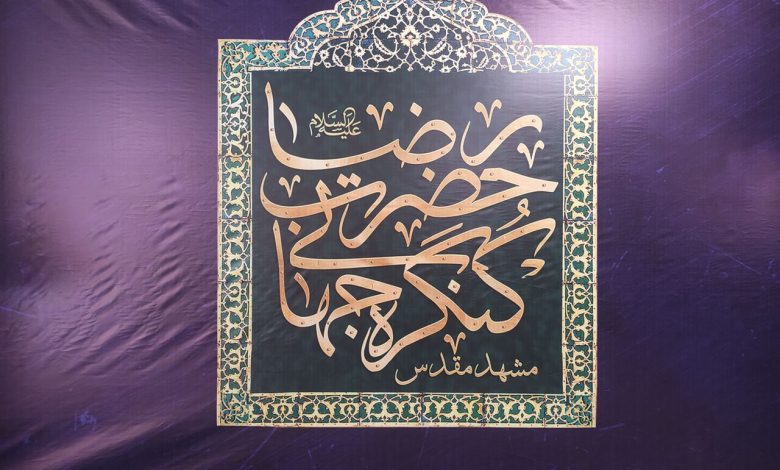 کنگره جهانی
حضرت رضا
علیه السلام
مشهد مقدس